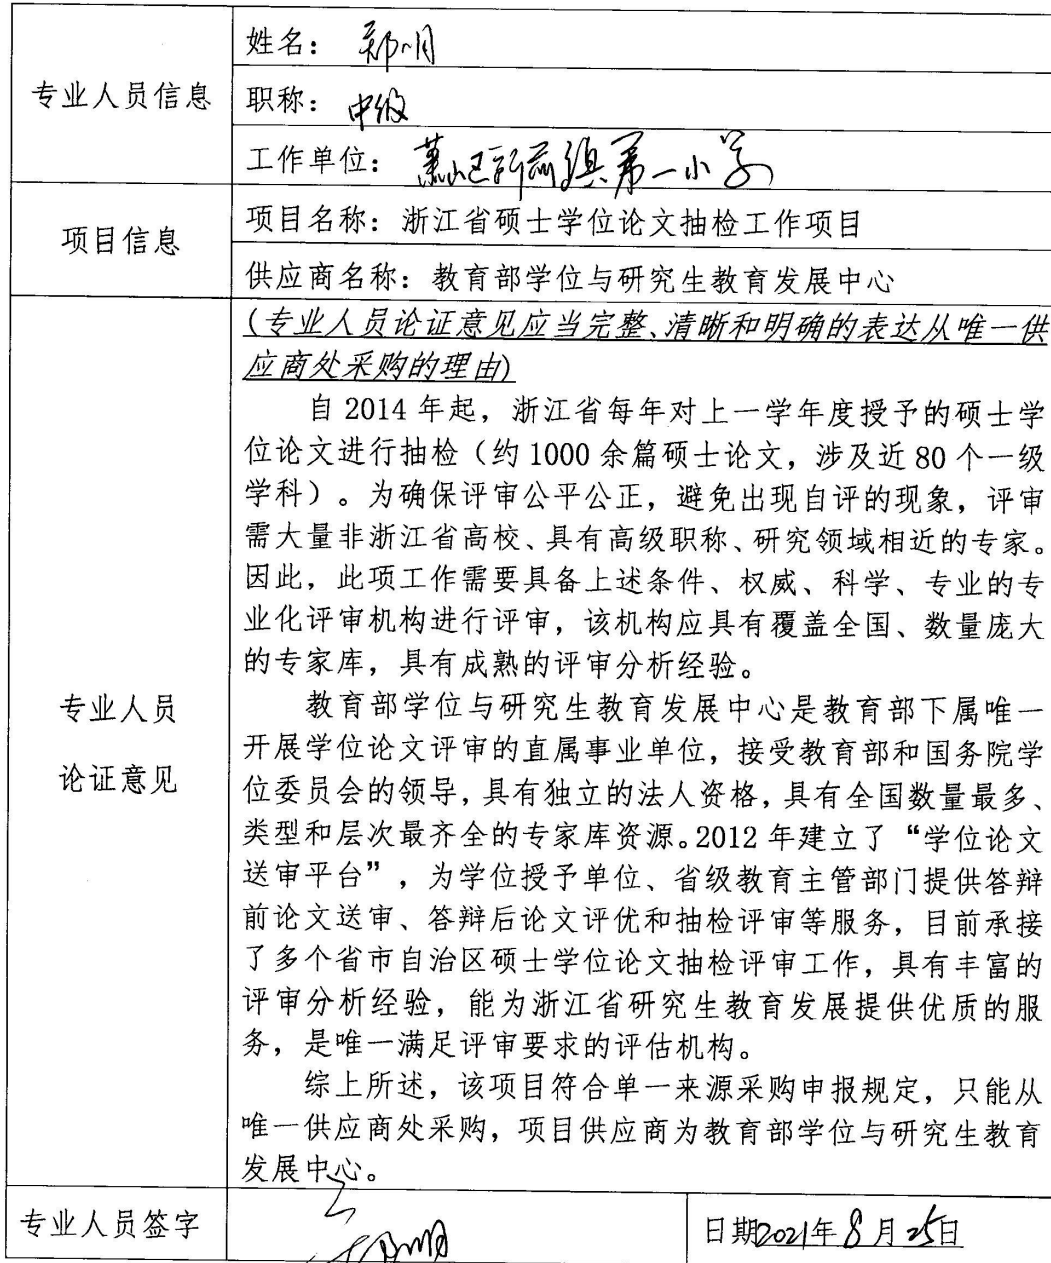 专业人员信息
姓名：郑明
职称：中级
工作单位：萧山区所前镇第一小学
项目信息
项目名称：浙江省硕士学位论文抽检工作项目
供应商名称：教育部学位与研究生教育发展中心
专业人员
论证意见
(专业人员论证意见应当完整、清晰和明确的表达从唯一供
应商处采购的理由)
自 2014 年起，浙江省每年对上一学年度授予的硕士学
位论文进行抽检（约 1000 余篇硕士论文，涉及近 80 个一级
学科）。为确保评审公平公正，避免出现自评的现象，评审
需大量非浙江省高校、具有高级职称、研究领域相近的专家。
因此，此项工作需要具备上述条件、权威、科学、专业的专
业化评审机构进行评审，该机构应具有覆盖全国、数量庞大
的专家库，具有成熟的评审分析经验。
教育部学位与研究生教育发展中心是教育部下属唯一
开展学位论文评审的直属事业单位，接受教育部和国务院学
位委员会的领导，具有独立的法人资格，具有全国数量最多、
类型和层次最齐全的专家库资源。2012 年建立了“学位论文
送审平台”，为学位授予单位、省级教育主管部门提供答辩
前论文送审、答辩后论文评优和抽检评审等服务，目前承接
了多个省市自治区硕士学位论文抽检评审工作，具有丰富的
评审分析经验，能为浙江省研究生教育发展提供优质的服
务，是唯一满足评审要求的评估机构。
综上所述，该项目符合单一来源采购申报规定，只能从
唯一供应商处采购，项目供应商为教育部学位与研究生教育
发展中心。
专业人员签字
日期2021年8月25日